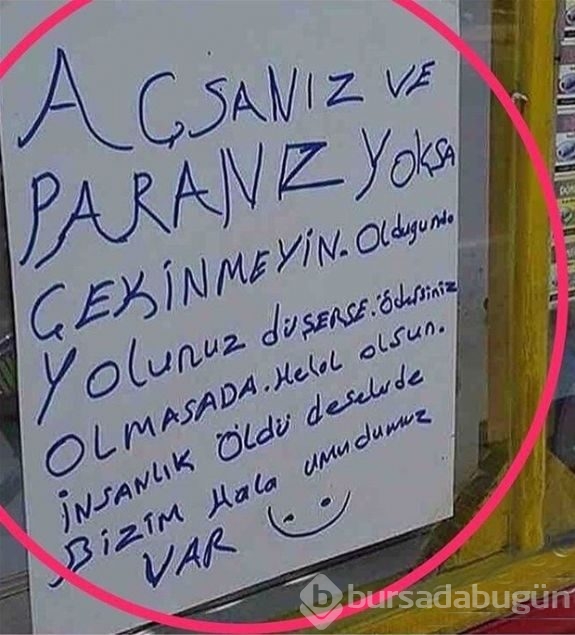 AÇSANIZ VE
PARANIZ YOKSA
ÇEKİNMEYİN. Olduğunda
Yolunuz DÜŞERSE. ödersiniz
OLMASADA. Helal olsun.
İNSANLIK ÖLDÜ deselerde
BİZİM Hala umudumuz
VAR
bursadabugün